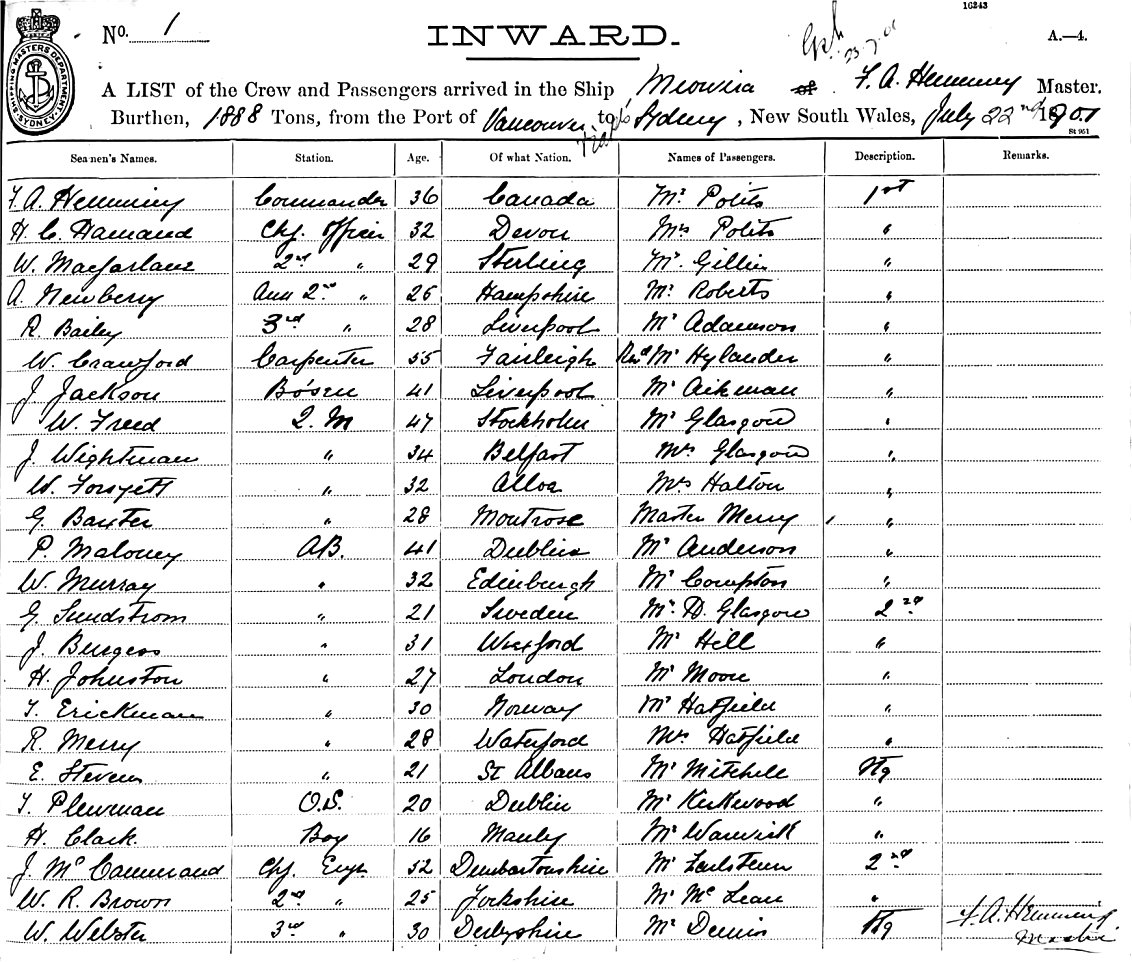 16243
SHIPPING MASTERS DEPARTMENT SYDNEY
No. 1
INWARD.
A.—4.
A LIST of the Crew and Passengers arrived in the Ship Miowera of F. A. Hemming Master.
Burthen, 1888 Tons, from the Port of Vancouver to Sydney, New South Wales, July 22nd 1901
St 951
Seamen's Names. Station. Age. Of what Nation. Names of Passengers. Description. Remarks.
F. A. Hemming Commander 36 Canada Mr Polits 1st
H. C. Hamand Chf. Officer 32 Devon Mrs Polits "
W. Macfarlane 2nd " 29 Sterling Mr. Gillies "
A. Newberry 2nd " 26 Hampshire Mr. Roberts "
R. Bailey 3rd " 28 Liverpool Mr Adamson "
W. Crawford Carpenter 55 Fairleigh Revd Mr Hylander "
J Jackson Bo'sen 41 Liverpool Mr Aikman "
W. Freed Q. M 47 Stockholm Mr Glasgow "
J. Wightman " 34 Belfast Mrs Glasgow "
W. Forsyett " 32 Alloa Mrs Halton "
G. Baxter " 28 Montrose Master Merry "
P. Maloney AB. 41 Dublin Mr Anderson "
W. Murray " 32 Edinburgh Mr Compton "
G. Sundstrom " 21 Sweden Mr. D. Glasgow 2nd
J. Burgess " 31 Wexford Mr Hill "
H. Johnston " 27 London Mr Moore "
T. Erickman " 30 Norway Mr Hatfield "
R. Merry " 28 Waterford Mrs Hatfield "
E. Stevens " 21 St Albans Mr Mitchell Stg
T. Plewman O.S. 20 Dublin Mr Kirkwood "
H. Clark. Boy 16 Manly Mr Warwick "
J. Mc Cammand Chf. Engr 52 Dumbartonshire Mr 2nd
W. R. Brown 2nd " 25 Yorkshire Mr Mc Lean "
W. Webster 3rd " 30 Derbyshire Mr Dennis Stg F. A. Hemming
Master